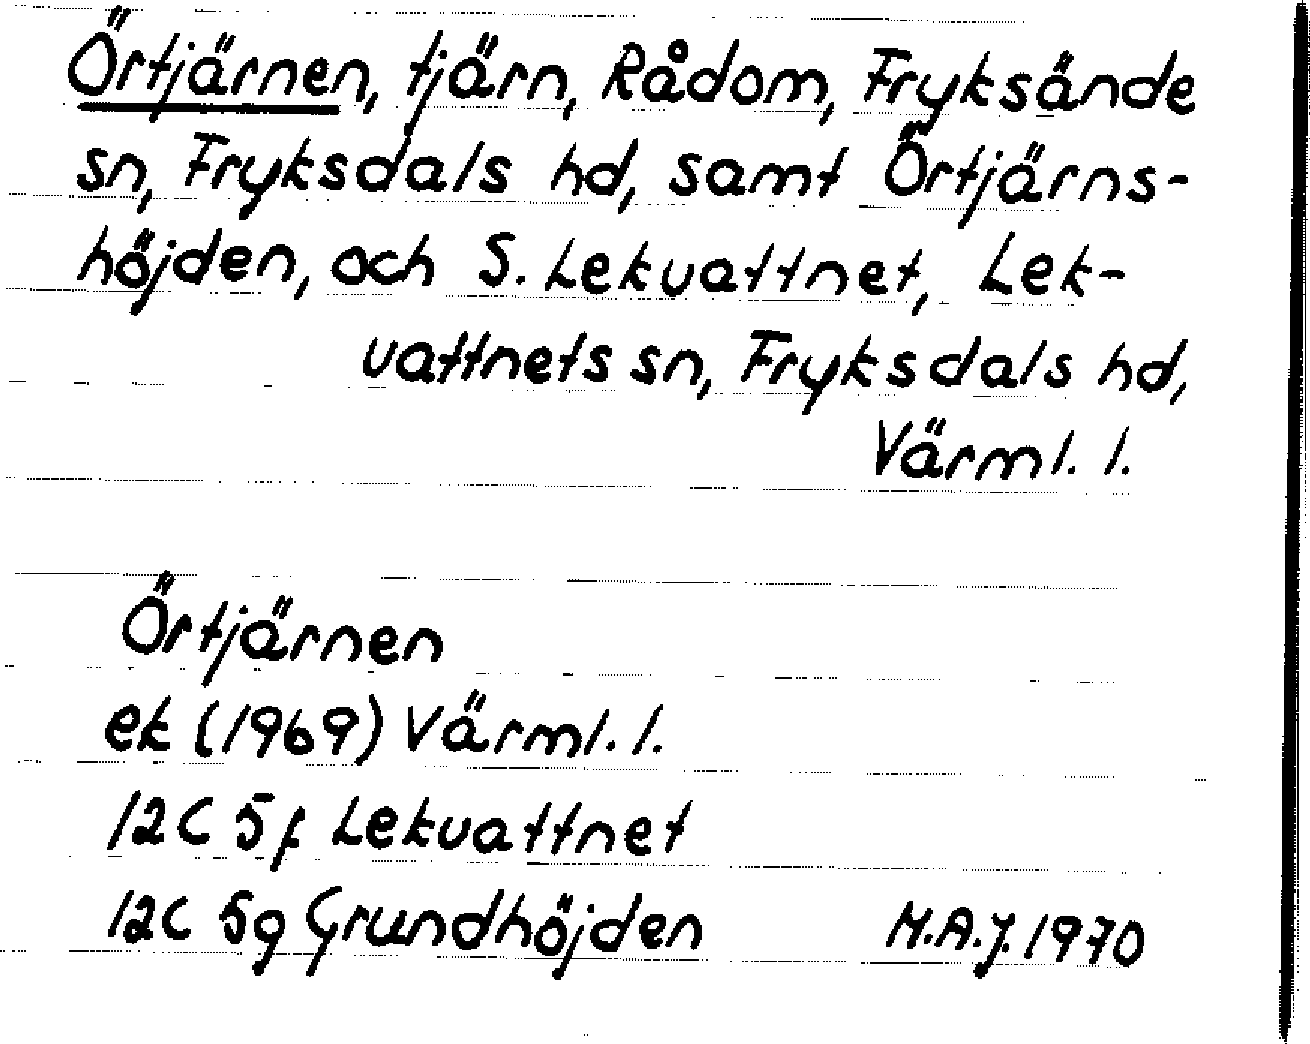 Örtjärnen, tjärn, Rådom, Fryksände
sn, Fryksdals hd, samt Örtjärns-
höjden, och S. Lekvattnet, Lek-
vattnets sn, Fryksdals hd,
Värml. l.
Örtjärnen
ek (1969) Värml. l.
12C 5f Lekvattnet
12C 5g Grundhöjden M.A.J. 1970